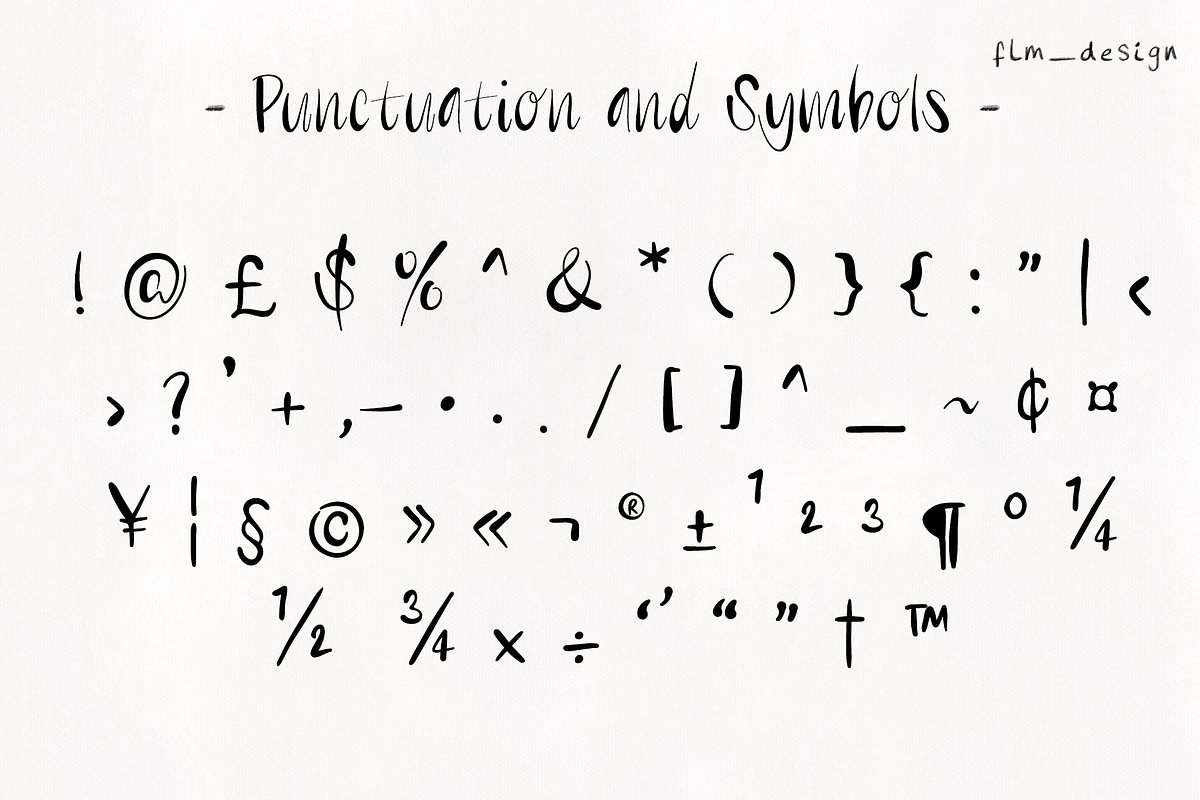 flm_design
- Punctuation and Symbols -
! @ £ $ % ^ & * ( ) } { : ” | <
> ? ’ + , — • · . / [ ] ^ _ ~ ¢ ¤
¥ ¦ § © » « ¬ ® ± ¹ ² ³ ¶ º ¼
½ ¾ × ÷ ‘ ’ “ ” † ™